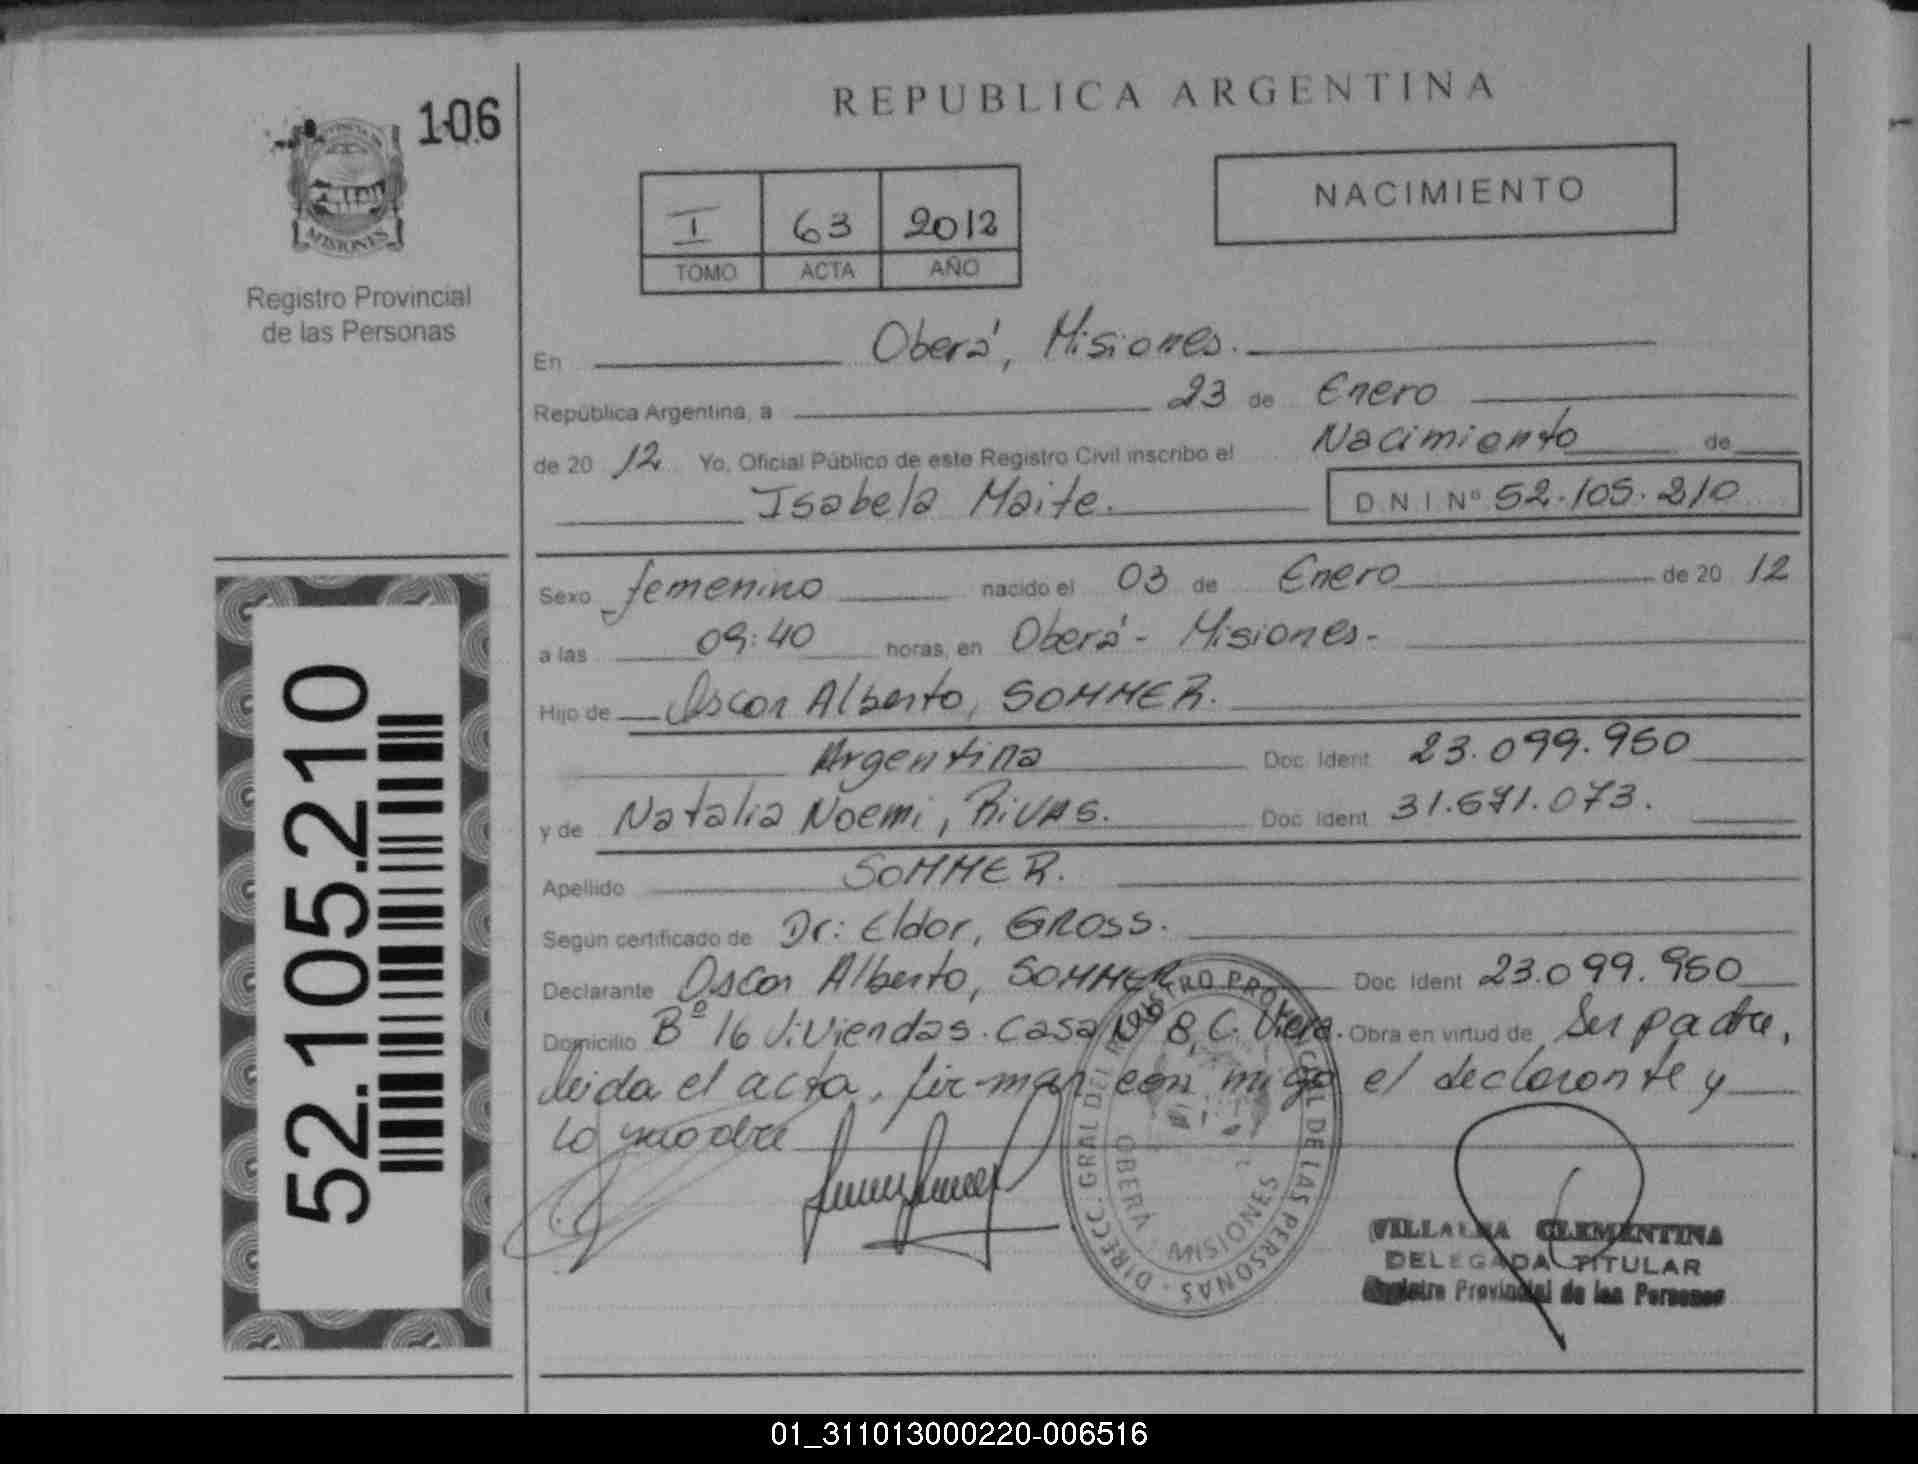 106
REPUBLICA ARGENTINA
NACIMIENTO
I 63 2012
TOMO ACTA AÑO
MISIONES
Registro Provincial
de las Personas
En Oberá, Misiones.
República Argentina, a 23 de Enero
de 20 12 Yo, Oficial Público de este Registro Civil inscribo el Nacimiento de
Isabela Maite. D.N.I Nº 52.105.210
Sexo femenino nacido el 03 de Enero de 20 12
a las 09:40 horas, en Oberá - Misiones-
Hijo de Oscar Alberto, SOMMER.
Argentina Doc. Ident. 23.099.950
y de Natalia Noemi, RIVAS. Doc. Ident. 31.571.073.
Apellido SOMMER.
Según certificado de Dr: Eldor, GROSS.
Declarante Oscar Alberto, SOMMER Doc. Ident 23.099.950
Domicilio Bº 16 Viviendas. Casa Nº 8, C. Viera. Obra en virtud de Ser padre,
leida el acta, firman con migo el declarante y
la madre
DIRECC. GRAL DEL REGISTRO PROVINCIAL DE LAS PERSONAS
OBERÁ MISIONES
VILLALBA CLEMENTINA
DELEGADA TITULAR
Registro Provincial de las Personas
52.105.210
01_311013000220-006516